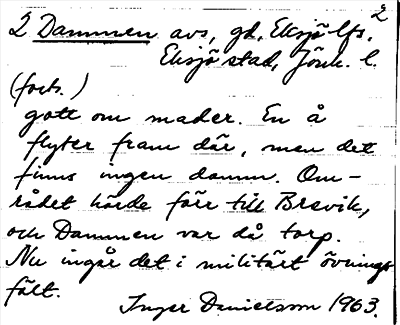 2
2 Dammen avs, gd, Eksjö lfs,
Eksjö stad, Jönk. l.
(forts.)
gott om mader. En å
flyter fram där, men det
finns ingen damm. Om-
rådet hörde förr till Bresvik,
och Dammen var då torp.
Nu ingår det i militärt övnings
fält.
Inger Danielsson 1963.